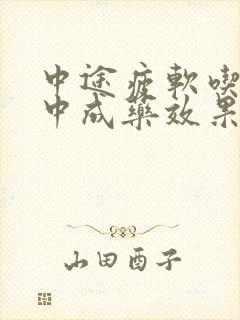 中途疲軟喫
中成藥效果
山田酉子